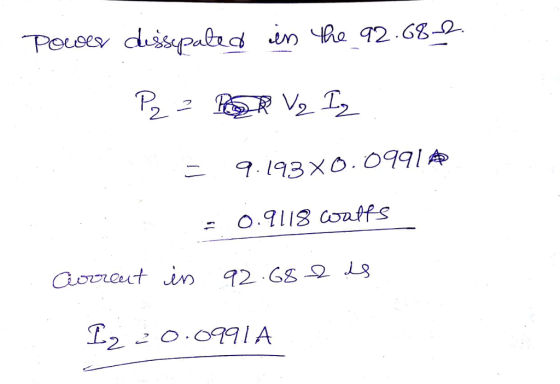 Power dissipated in the 92.68 Ω.
P₂ = V₂ I₂
= 9.193 × 0.0991
= 0.9118 watts
Current in 92.68 Ω is
I₂ = 0.0991 A